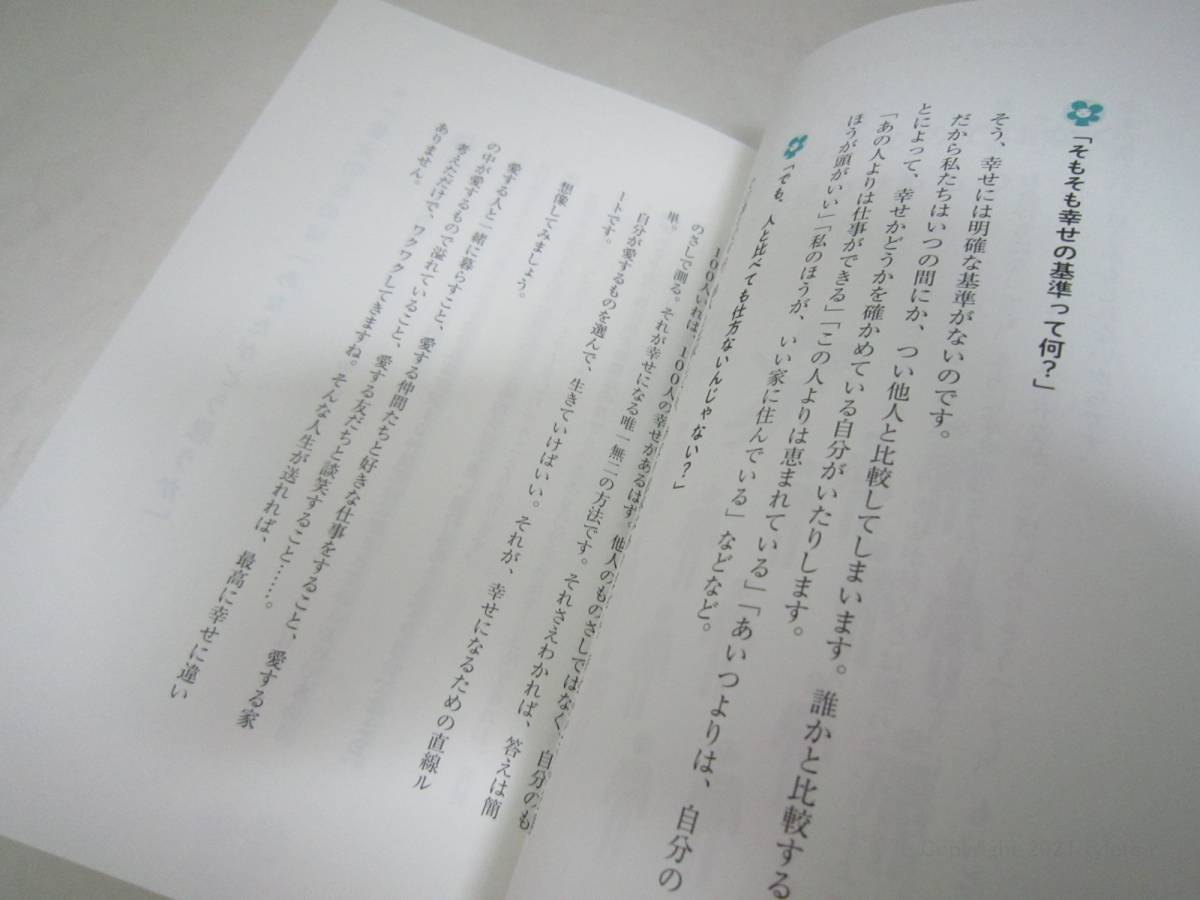 「そもそも幸せの基準って何？」
そう、幸せには明確な基準がないのです。
だから私たちはいつの間にか、つい他人と比較してしまいます。誰かと比較する
ことによって、幸せかどうかを確かめている自分がいたりします。
「あの人よりは仕事ができる」「この人よりは恵まれている」「あいつよりは、自分の
ほうが頭がいい」「私のほうが、いい家に住んでいる」などなど。
「でも、人と比べても仕方ないんじゃない？」
100人いれば、100人の幸せがあるはず。他人のものさしではなく、自分のも
のさしで測る。それが幸せになる唯一無二の方法です。それさえわかれば、答えは簡
単。
自分が愛するものを選んで、生きていけばいい。それが、幸せになるための直線ル
ートです。
想像してみましょう。
愛する人と一緒に暮らすこと、愛する仲間たちと好きな仕事をすること、愛する家
の中が愛するもので溢れていること、愛する友だちと談笑すること……。
考えただけで、ワクワクしてきますね。そんな人生が送れれば、最高に幸せに違い
ありません。